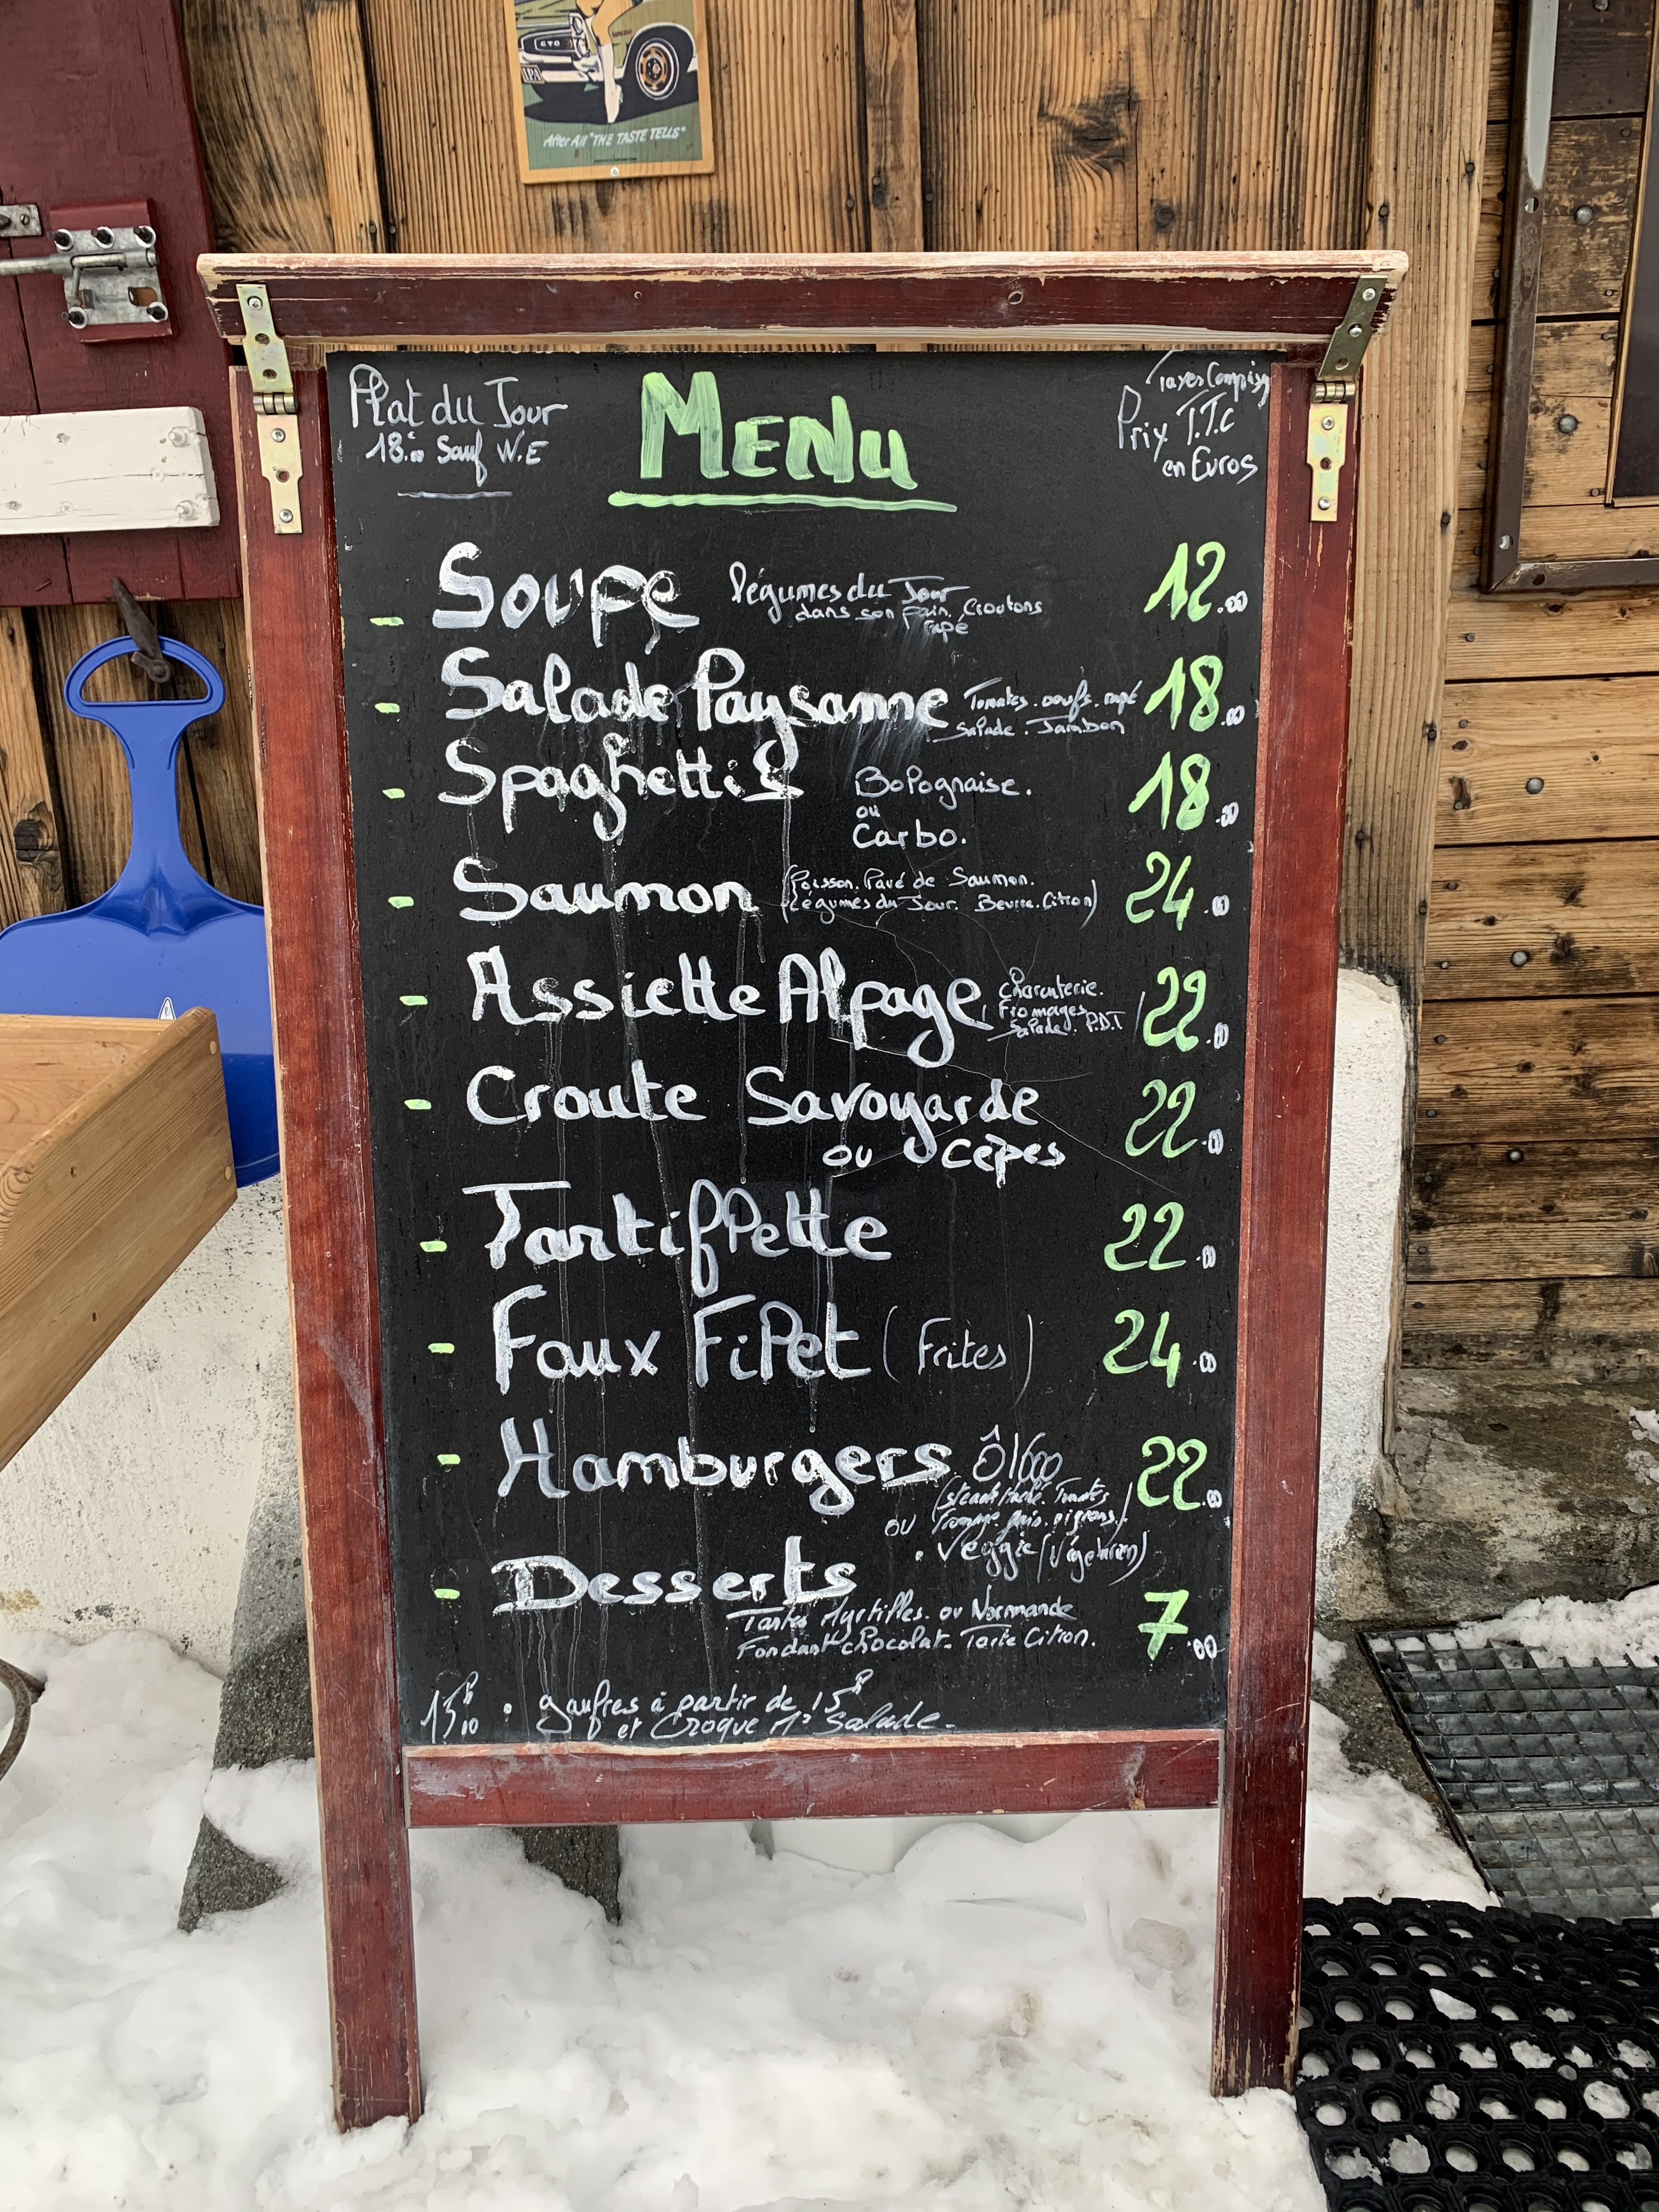 GTO
After All "THE TASTE TELLS"
Plat du Jour
18.€00 Sauf W.E
MENU
Taxes Comprises
Prix T.T.C
en Euros
- Soupe légumes du Jour 12.00
dans son pain. Croutons
rapé
- Salade Paysanne Tomates. oeufs. rapé 18.00
Salade. Jambon
- Spaghettis Bolognaise. 18.00
ou
Carbo.
- Saumon (Poisson. Pavé de Saumon. 24.00
Légumes du Jour. Beurre. Citron)
- Assiette Alpage (Charcuterie. 22.00
Fromages
Salade. P.D.T)
- Croute Savoyarde 22.00
ou Cèpes
- Tartiflette 22.00
- Faux Filet (Frites) 24.00
- Hamburgers Ô1600 22.00
(Steak Haché. Tomates
ou fromage. pain. oignons.)
. Veggie (Végétarien)
- Desserts 7.00
Tartes Myrtilles. ou Normande
Fondant chocolat. Tarte Citron.
15h00 : gaufres à partir de 15h
et Croque Mr Salade.